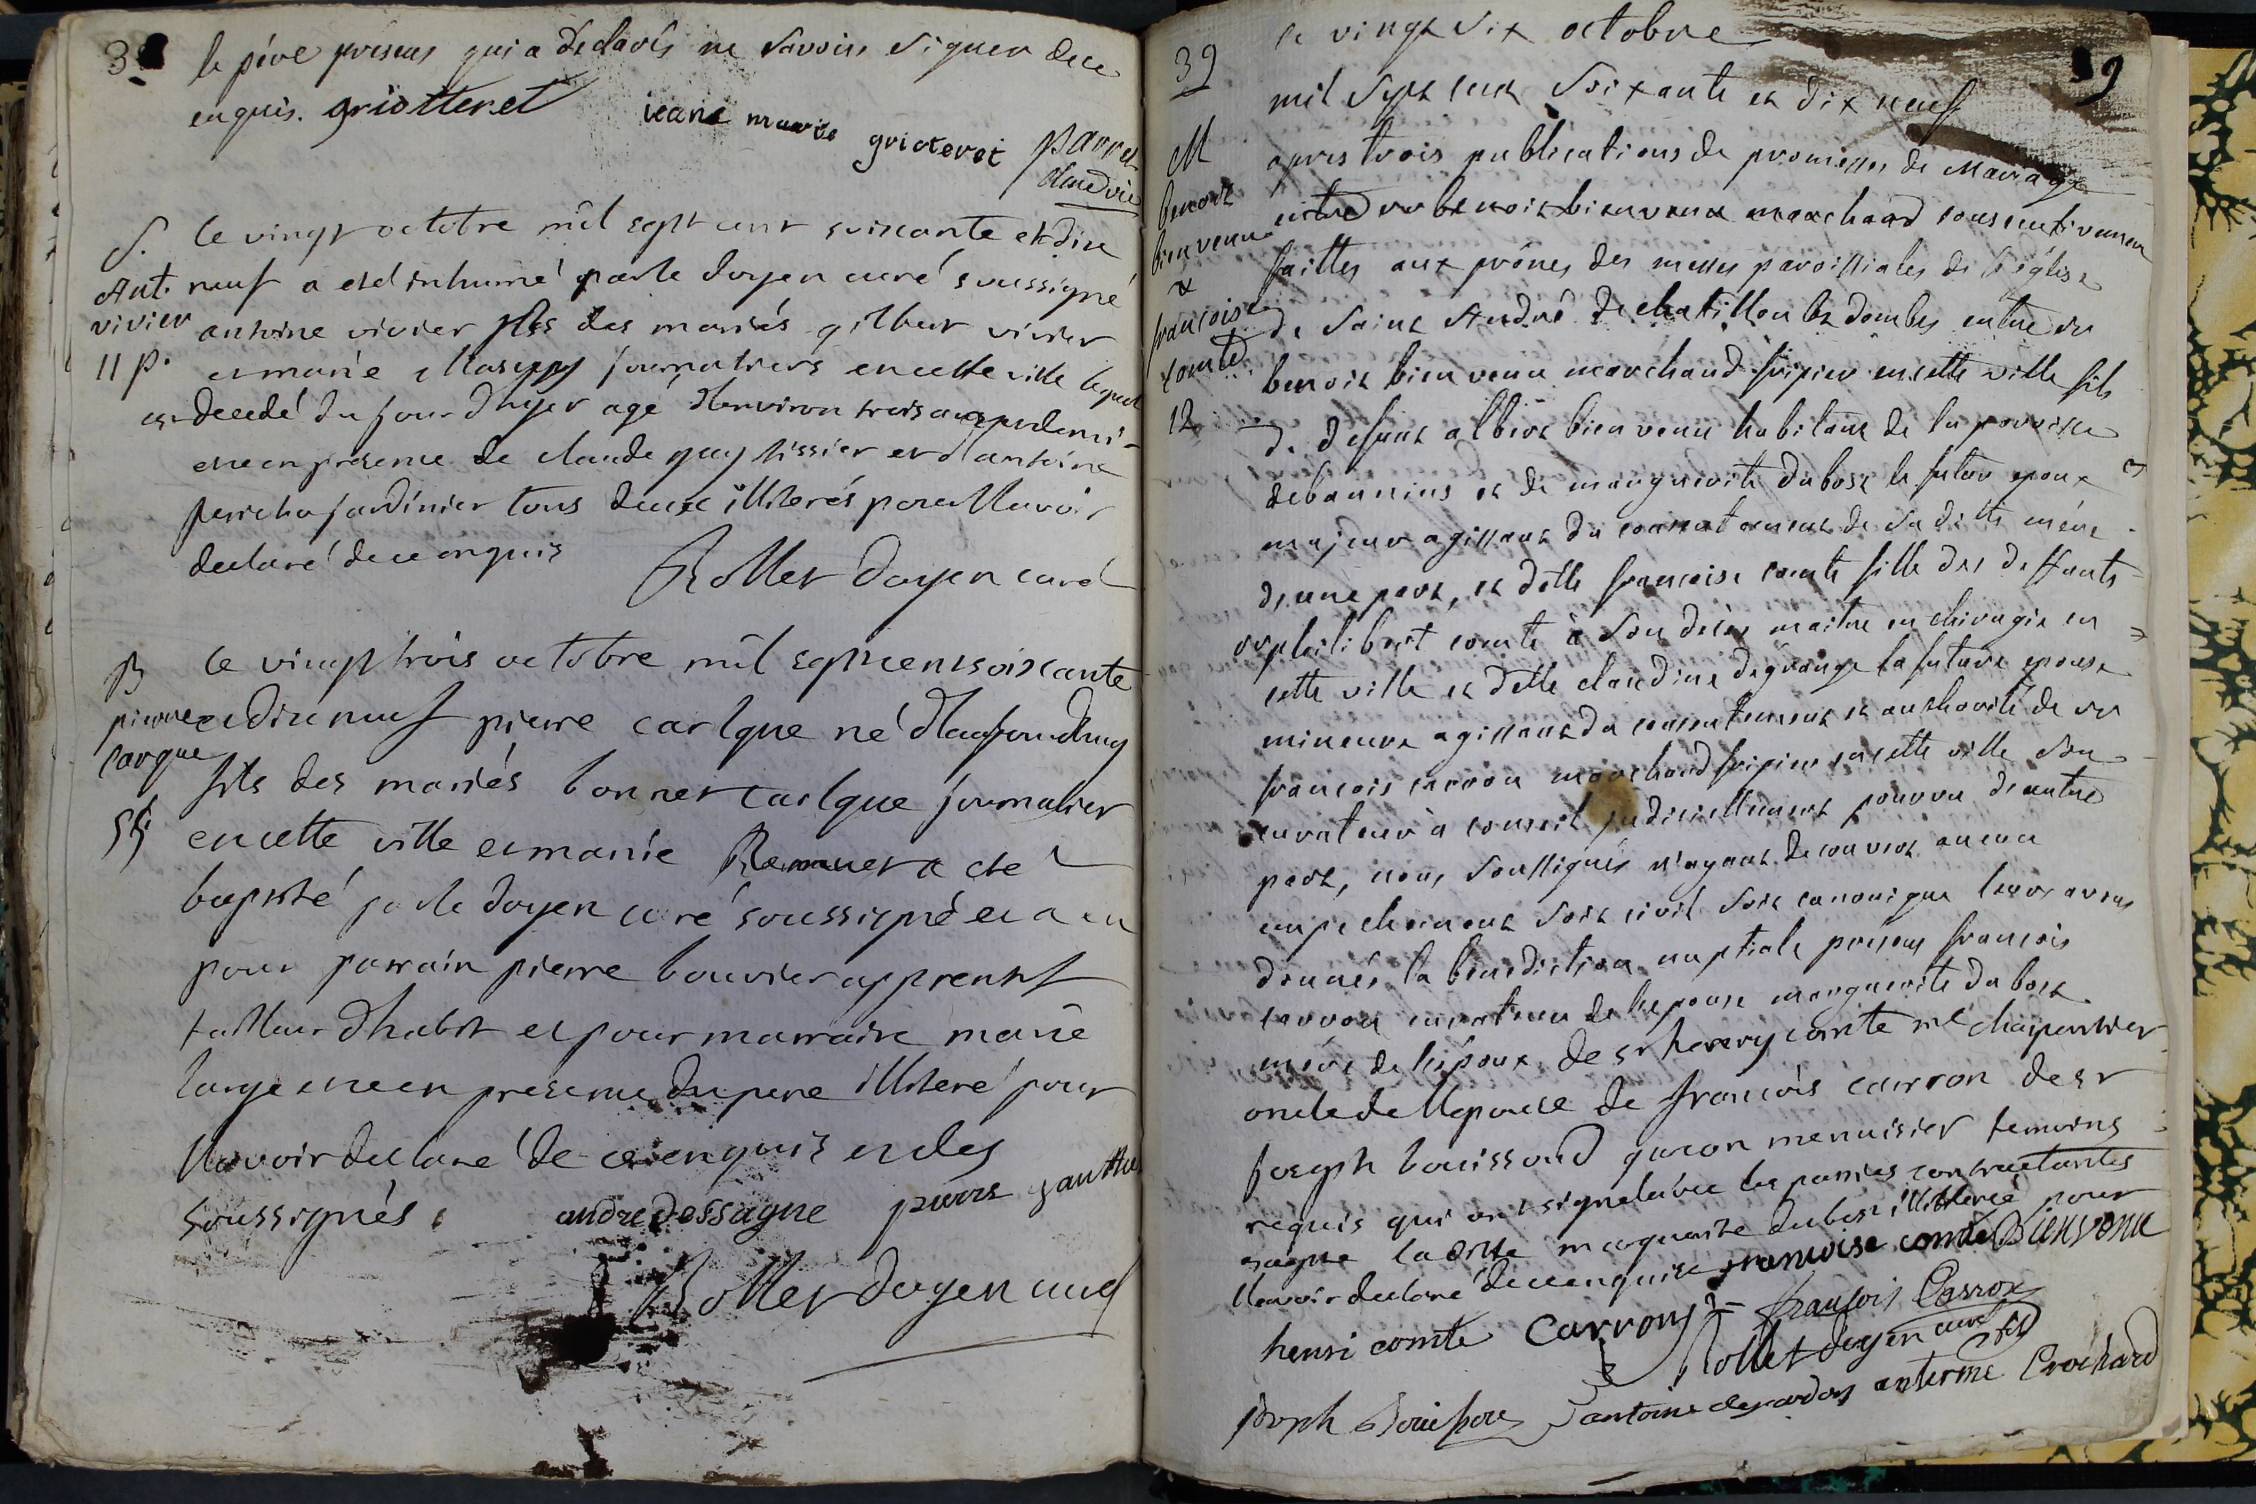 38
le père present qui a declarés ne savoir signer de ce
enquis. griotteret
jeane marie grioteret parret
claudvie
S.
Ant.
vivier
11 p.
le vingt octobre mil sept cent soixante et dix
neuf a eté inhumé par le doyen curé soussigné
antoine vivier fils des mariés gilbert vivier
et marie journaliers en cette ville lequel
est decedé du jour d'hyer agé d'environ trois ans et demi
ce en presence de claude guy tissier et d'antoine
perichu jardinier tous deux illiterés pour l'avoir
declaré de ce enquis
Rollet doyen curé
B
pierre
carque
55
le vingt trois octobre mil sept cent soixante
et dix neuf pierre carlque né d'aujourdhuy
fils des mariés bonnet carlque journalier
en cette ville et marie Remuet a eté
baptisé par le doyen curé soussigné et a eu
pour parrain pierre bouvier apprentif
tailleur d'habit et pour marraine marie
large ce en presence du pere illiteré pour
l'avoir declaré de ce enquis et des
soussignés. andre dessagne pierre gautthier
Rollet doyen curé
39
39
le vingt six octobre
mil sept cent soixante et dix neuf
M
benoit
bienvenu
&
francoise
comte
12
apres trois publications de promesses de Mariage
entre sr benoit bienvenu marchand consecutivement
faittes aux prônes des messes paroissiales de l'église
de Saint André de chatillon les dombes entre sr
benoit bienvenu marchand fripier en cette ville fils
de defunt albert bienvenu habitant de la parroisse
de bannins et de marguerite dubost le futur epoux
majeur agissant du consentement de sa ditte mère
d'une part, et dlle francoise comte fille des deffunts
sr philibert comte à son décès maitre en chirurgie en
cette ville et dlle claudine degrange la future epouse
mineure agissant du consentement et authorité de sr
francois carron marchand fripier en cette ville son
curateur à conseil judiciellement pourvu d'autre
part, nous soussignés n'ayant decouvert aucun
empechement soit civil soit canonique leurs avons
donnés la benediction nuptiale présens francois
carron curateur de l'epouse marguerite dubost
mère de l'époux de sr henry comte me charpentier
oncle de l'epouse de françois carron de sr
joseph bouissoud garcon menuisier temoins
requis qui ont signé avec les parties contractantes
excepté la ditte marguerite dubost illiterée pour
l'avoir declaré de ce enquise francoise comte Bienvenu
henri comte Carron françois Carron
Rollet doyen curé
joseph Bouissou antoine desjardons anterme Crochard